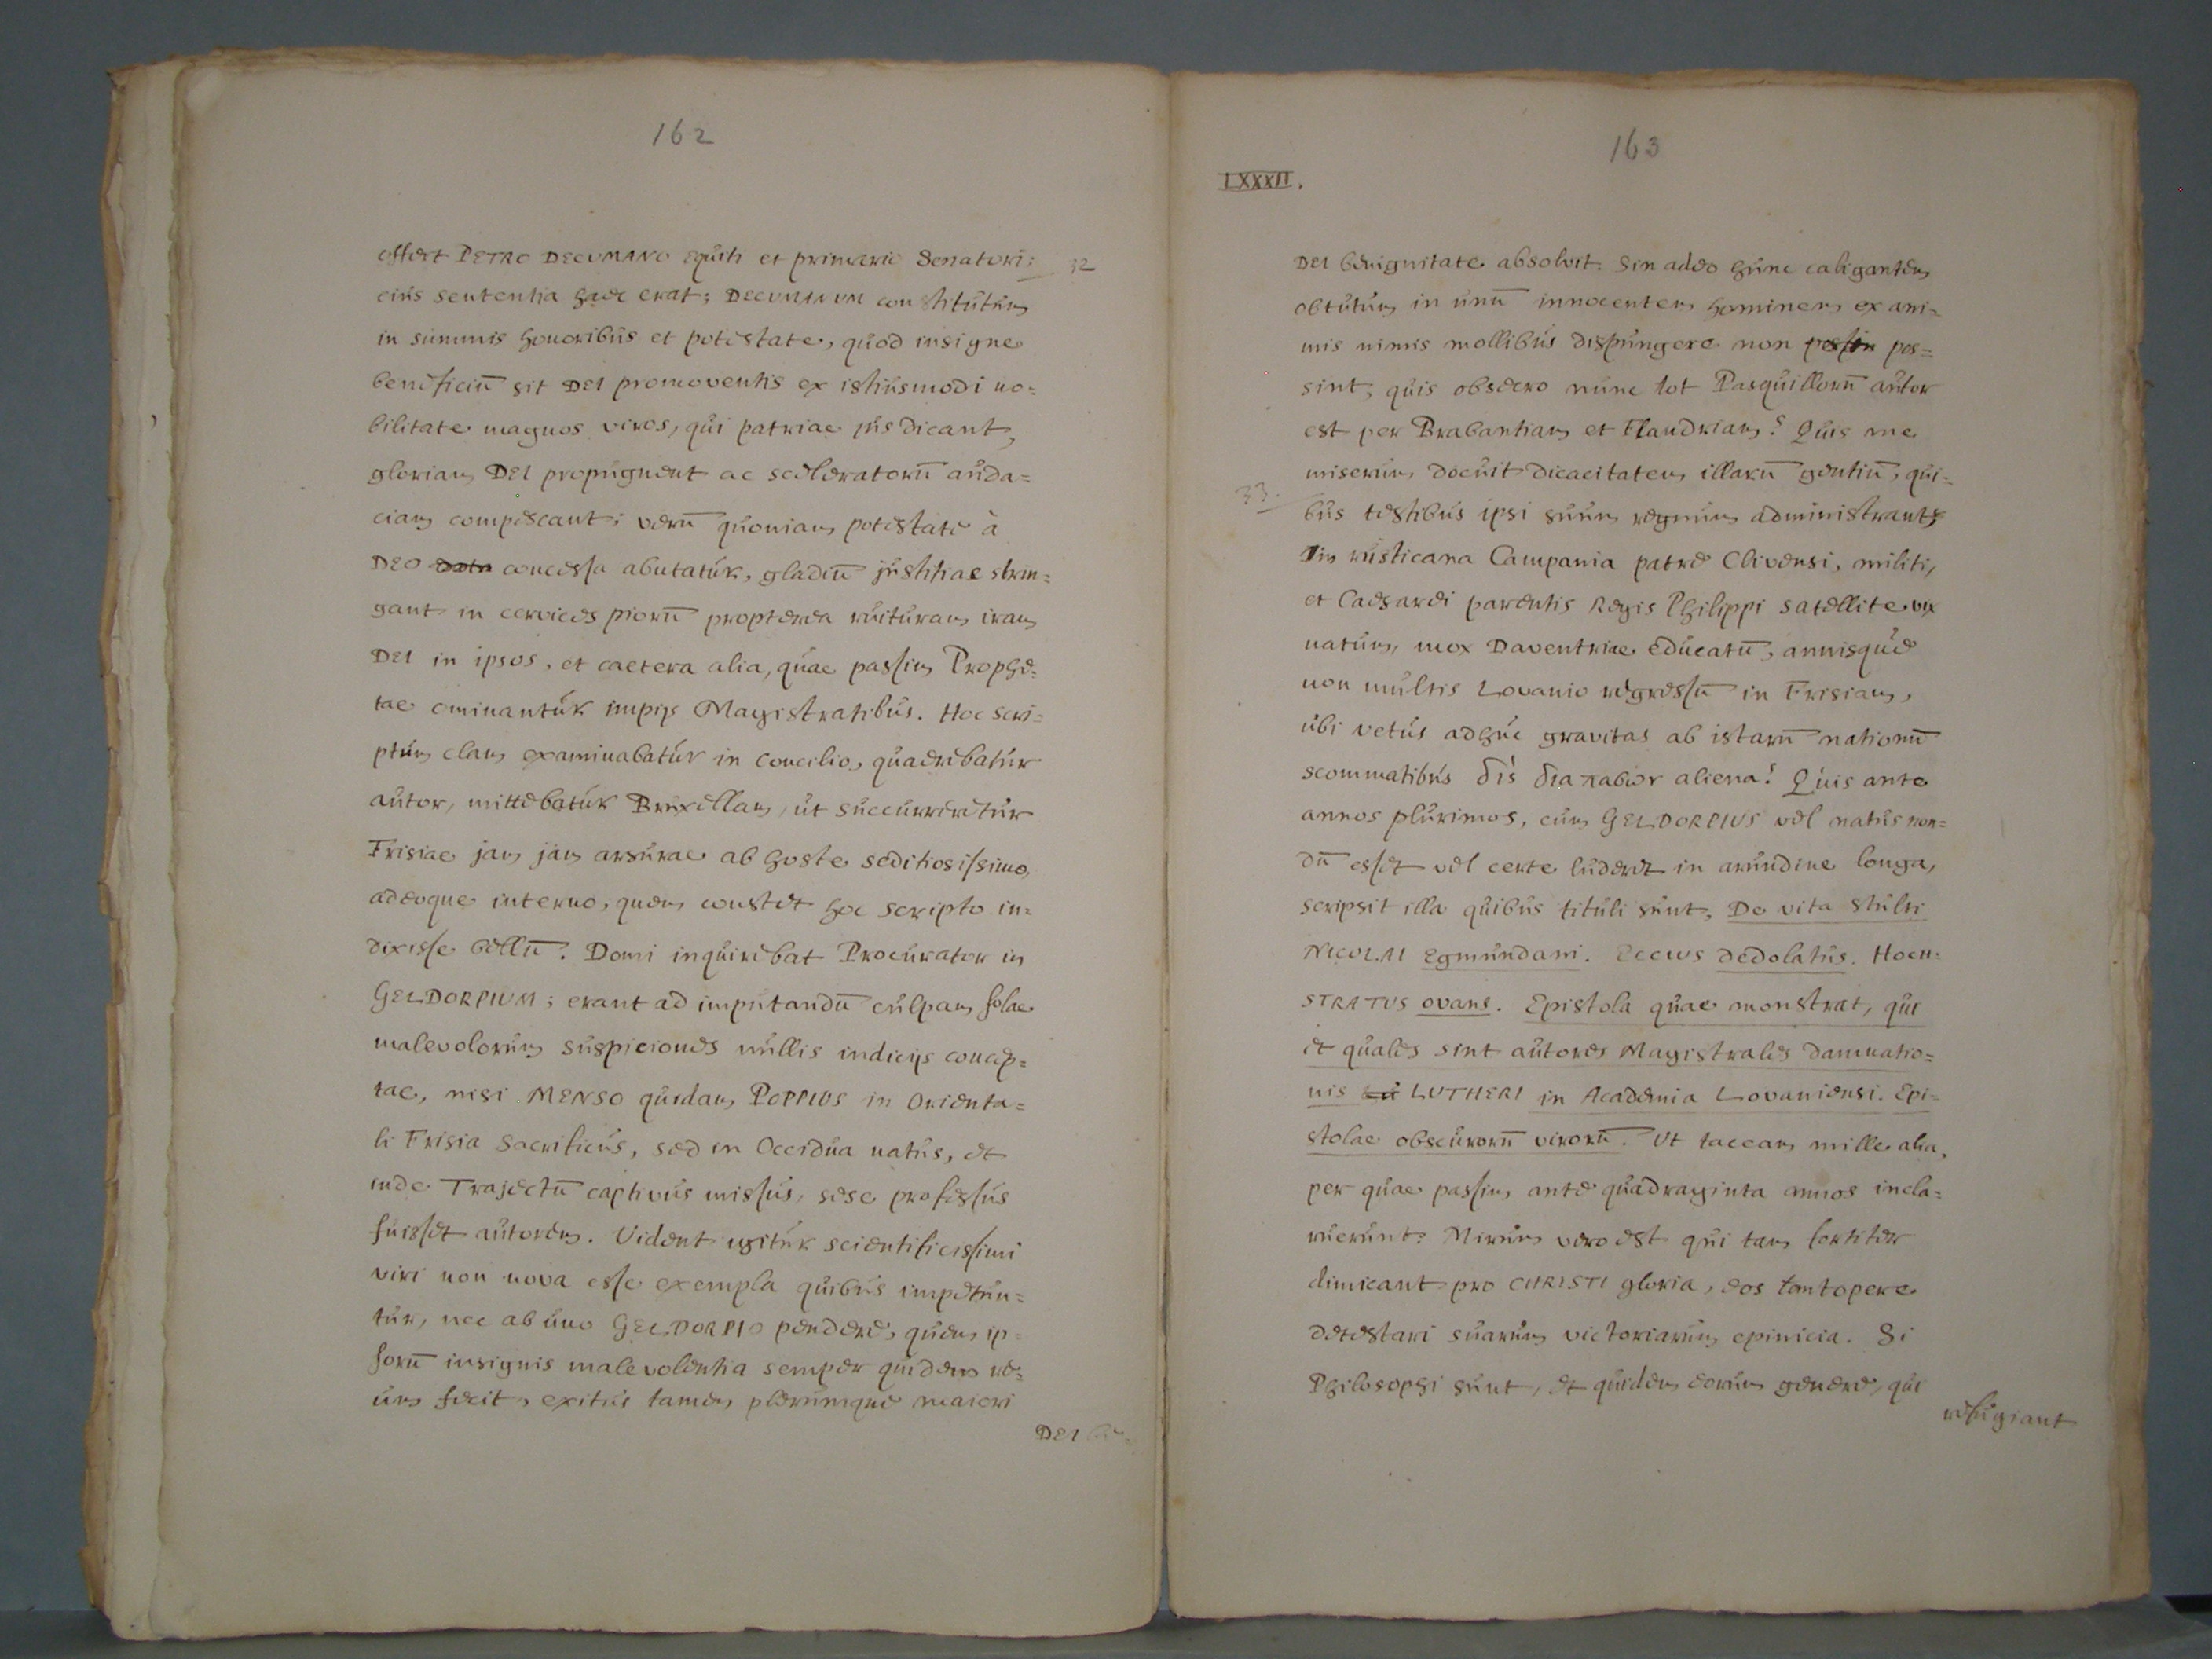 162
offert PETRO DECUMANO Equiti et primario Senatori; 32
eius sententia haec erat; DECUMANUM constitutum
in summis honoribus et potestate, quod insigne
beneficiū sit DEI promoventis ex istiusmodi no=
bilitate magnos viros, qui patriae jus dicant,
gloriam DEI propugnent ac sceleratorū auda=
ciam compescant; verū quoniam potestate à
DEO data concessa abutatur, gladiū justitiae strin=
gant in cervices piorū propterea ruituram iram
DEI in ipsos, et caetera alia, quae passim Prophe=
tae ominantur impijs Magistratibus. Hoc scri=
ptum clam examinabatur in concilio, quaerebatur
autor, mittebatur Bruxellam, ut succurreretur
Frisiae jam jam arsurae ab hoste seditiosissimo,
adeoque interno, quem constet hoc scripto in=
dixisse bellū. Domi inquirebat Procurator in
GELDORPIUM; erant ad imputandū culpam solae
malevolorum suspiciones nullis indicijs concep=
tae, nisi MENSO quidam POPPIUS in Orienta=
li Frisia Sacrificus, sed in Occidua natus, et
inde Trajectū captivus missus, sese professus
fuisset autorem. Vident igitur scientificissimi
viri non nova esse exempla quibus impetun=
tur, nec ab uno GELDORPIO pendere, quem ip=
sorū insignis malevolentia semper quidem re=
um fecit, exitus tamen plerumque maiori
DEI be=
163
LXXXII.
DEI benignitate absolvit. Sin adeo hunc caligantem
obtutum in unū innocentem hominem ex ani=
mis nimis mollibus dispungere non possin pos=
sint; quis obsecro nunc tot Pasquillorū autor
est per Brabantiam et Flandriam? Quis me
miserum docuit dicacitatem illarū gentiū, qui=
33.
bus testibus ipsi suum regnum administrant,
in rusticana Campania patre Clivensi, militi,
et Caesarei parentis Regis Philippi satellite vix
natum, mox Daventriae educatū, annisque
non multis Lovanio regressū in Frisiam,
ubi vetus adhuc gravitas ab istarū nationū
scommatibus δὶς διὰ πασῶν aliena? Quis ante
annos plurimos, cum GELDORPIUS vel natus non=
dū esset vel certe luderet in arundine longa,
scripsit illa quibus tituli sunt, De vita Stulti
NICOLAI Egmundani. ECCIUS dedolatus. HOCH=
STRATUS ovans. Epistola quae monstrat, qui
et quales sint autores Magistrales damnatio=
nis Lu LUTHERI in Academia Lovaniensi. Epi=
stolae obscurorū virorū. Ut taceam mille alia,
per quae passim ante quadraginta annos incla=
ruerunt? Mirum vero est qui tam fortiter
dimicant pro CHRISTI gloria, eos tantopere
detestari suarum victoriarum epinicia. Si
Philosophi sunt, et quidem eorum genere, qui
refugiant